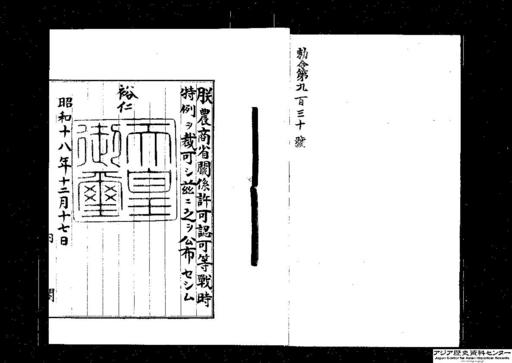 勅令第九百三十號
朕農商省關係許可認可等戰時
特例ヲ裁可シ茲ニ之ヲ公布セシム
裕仁
天皇
御璽
昭和十八年十二月十七日
内閣
アジア歴史資料センター
Japan Center for Asian Historical Records